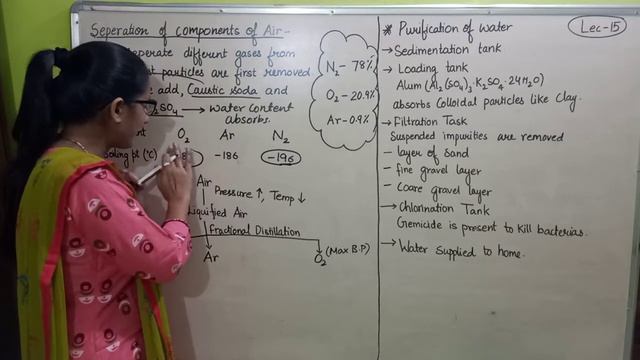 Seperation of components of Air -
seperate different gases from
particles are first removed
add, Caustic soda and
SO4 → water content
absorbs.
O2 Ar N2
pt (°C) -186 -196
Air
Pressure ↑, Temp ↓
Liquified Air
Fractional Distillation
Ar O2 (Max B.P)
N2 - 78%
O2 - 20.9%
Ar - 0.9%
Lec-15
* Purification of Water
→ Sedimentation tank
→ Loading tank
Alum (Al2(SO4)3·K2SO4·24H2O)
absorbs Colloidal particles like Clay.
→ Filtration Task
Suspended impurities are removed
- layer of Sand
- fine gravel layer
- Coare gravel layer
→ Chlorination Tank
Gemicide is present to kill bacterias.
→ Water Supplied to home.